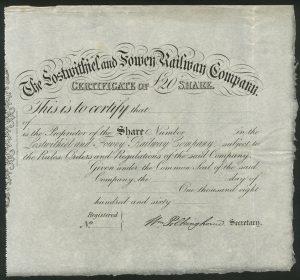 The Lostwithiel and Fowey Railway Company.
CERTIFICATE OF £20 SHARE.
This is to certify that
of
is the Proprietor of the Share Number in the
Lostwithiel and Fowey Railway Company subject to
the Rules, Orders and Regulations of the said Company.
Given under the Common Seal of the said
Company, the day of
One thousand eight
hundred and sixty
Registered
No.
Secretary.